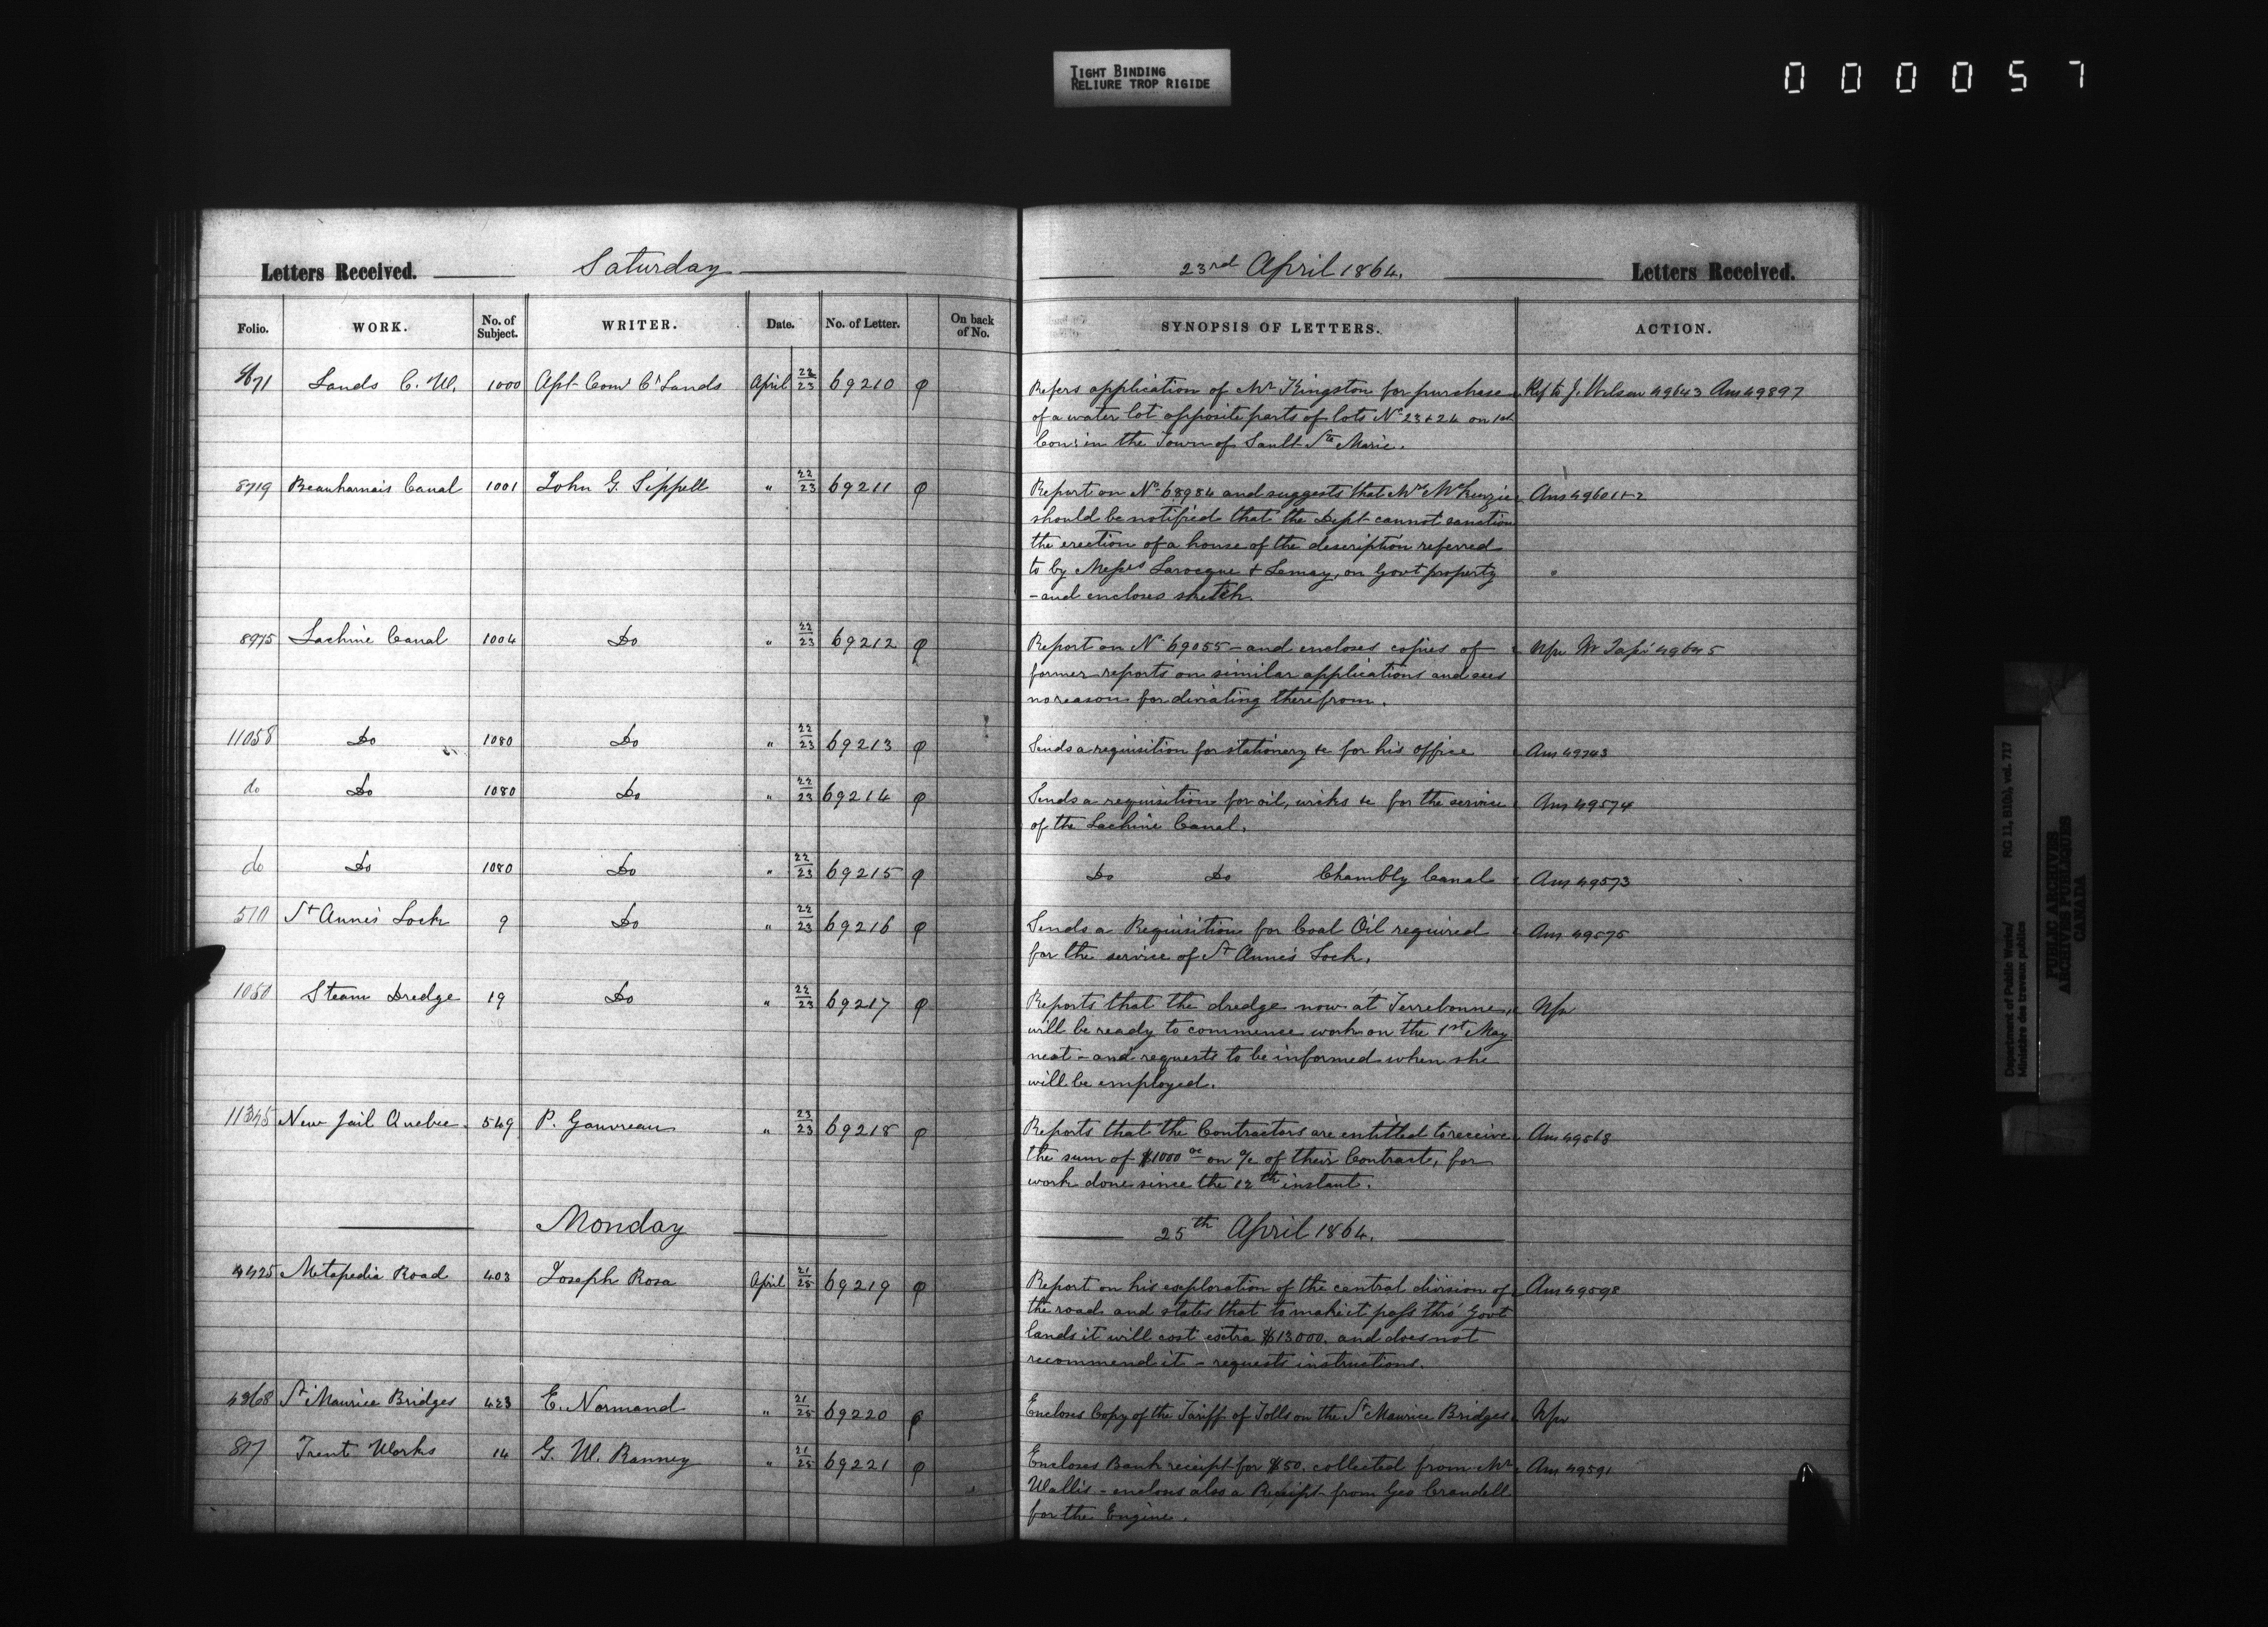 TIGHT BINDING
RELIURE TROP RIGIDE
000057
Letters Received. Saturday 23rd April 1864. Letters Received.
Folio. WORK. No. of Subject. WRITER. Date. No. of Letter. On back of No. SYNOPSIS OF LETTERS. ACTION.
Lands C. W. 1000 Asst Comr Cn Lands April 22/23 69210 Refers application of Mr Kingston for purchase Ref to J. Wilson 49643 Ans 49897
of a water lot opposite parts of lots No 23 & 24 on 1st
Con: in the Town of Sault Ste Marie.
8719 Beauharnais Canal 1001 John G. Sippell " 22/23 69211 Report on No 68984 and suggests that Mr McKenzie Ans 49601+2
should be notified that the Dept cannot sanction
the erection of a house of the description referred
to by Messrs Larocque & Lemay, on Govt property
- and encloses sketch.
8975 Lachine Canal 1004 Do " 22/23 69212 Report on No 69055 - and encloses copies of 49645
former reports on similar applications and sees
no reason for diviating therefrom.
11058 Do 1080 Do " 22/23 69213 Sends a requisition for stationery &c for his office Ans 49743
do Do 1080 Do " 22/23 69214 Sends a requisition for oil, wicks &c for the service Ans 49574
of the Lachine Canal.
do Do 1080 Do " 22/23 69215 Do Do Chambly Canal Ans 49573
510 St Anne's Lock 9 Do " 22/23 69216 Sends a Requisition for Coal Oil required Ans 49575
for the service of St Anne's Lock.
1050 Steam Dredge 19 Do " 22/23 69217 Reports that the dredge now at Terrebonne, Nfr
will be ready to commence work on the 1st May
next - and requests to be informed when she
will be employed.
11345 New Jail Quebec 549 P. Gauvreau " 23/23 69218 Reports that the Contractors are entitled to receive Ans 49568
the sum of $1000 00 on a/c of their Contract, for
work done since the 12th instant.
Monday 25th April 1864.
4425 Metapedia Road 403 Joseph Rosa April 21/25 69219 Report on his exploration of the central division of Ans 49598
the road and states that to make it pass thro' Govt
lands it will cost extra $13000. and does not
recommend it - requests instructions.
St Maurice Bridges 423 E. Normand " 21/25 69220 Encloses Copy of the Tariff of Tolls on the St Maurice Bridges Nfr
877 Trent Works 14 G. W. Ranney " 21/25 69221 Encloses Bank receipt for $50. collected from Mr Ans 49591
Wallis - encloses also a Receipt from Geo Crandell
for the Engine.
Department of Public Works/ RG 11, B1(b), vol. 717
Ministère des travaux publics
PUBLIC ARCHIVES
ARCHIVES PUBLIQUES
CANADA